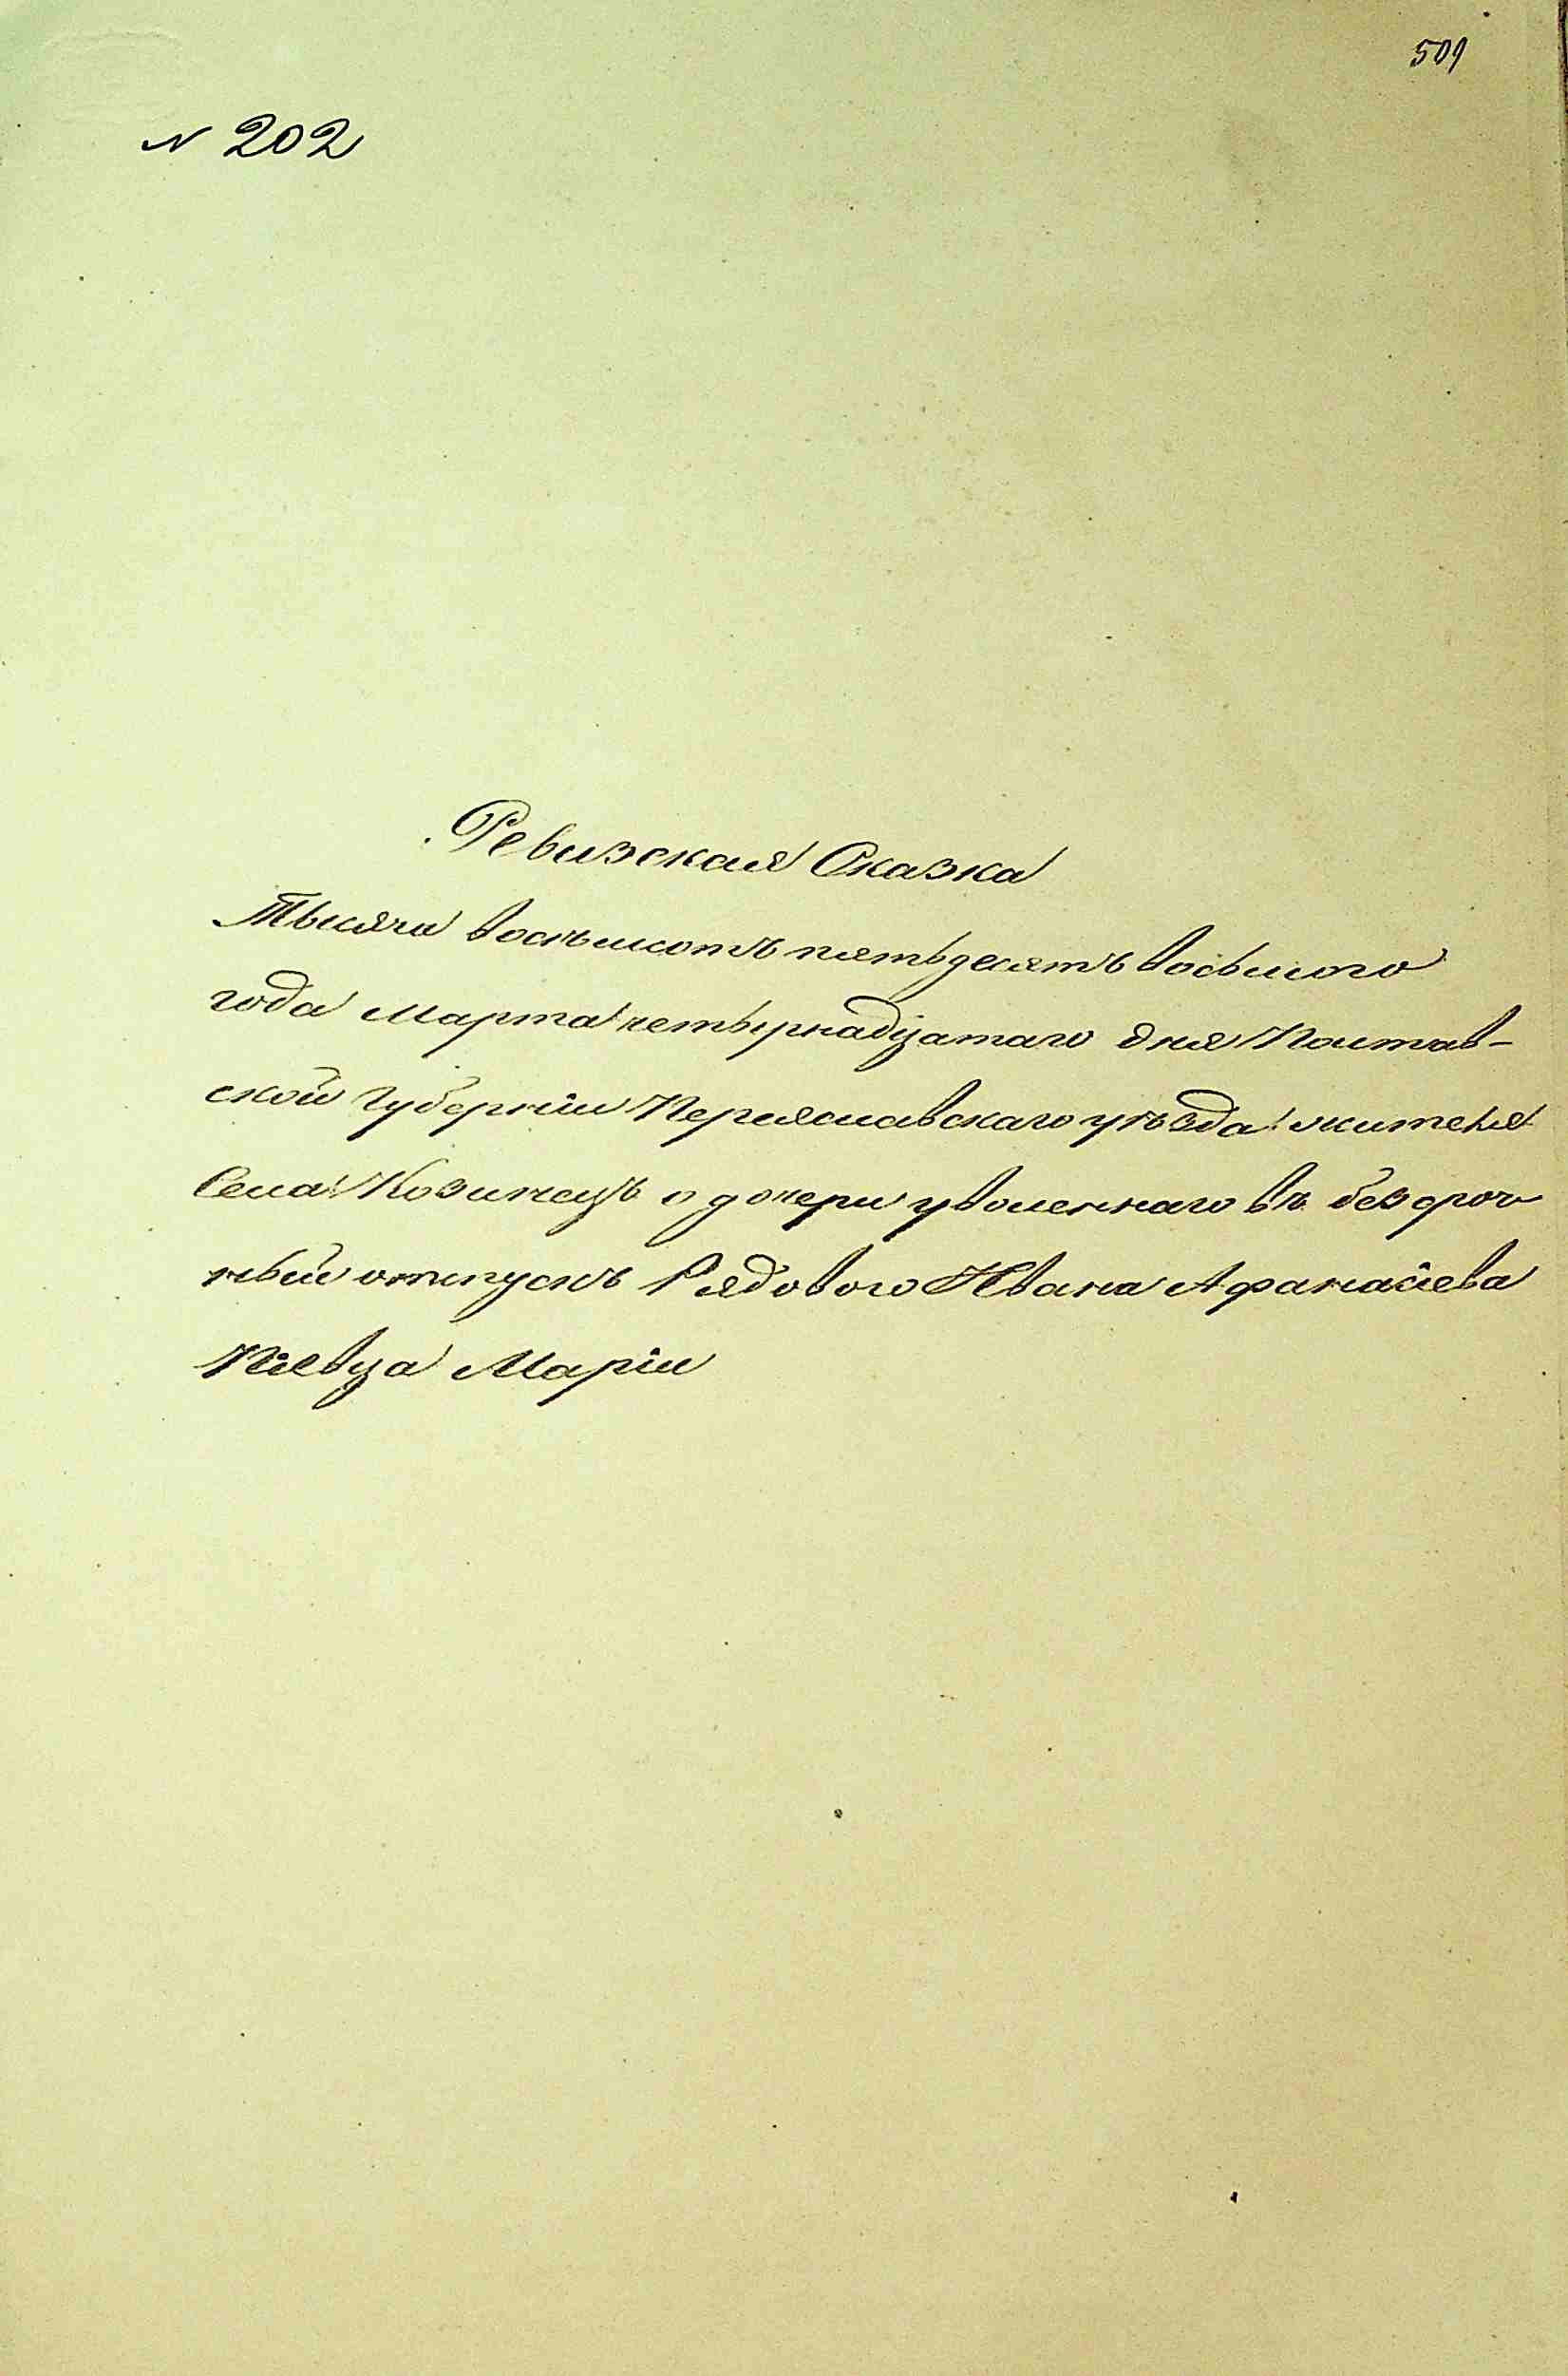 509
N 202
Ревизская Сказка
Тысяча восемьсотъ пятьдесятъ восьмого
года Марта четырнадцатаго дня Полтав-
ской Губерніи Переяславскаго уѣзда жителя
Села Козинецъ о дочери уволеннаго въ безсроч
ный отпускъ Рядового Ивана Афанасіева
Піевца Маріи